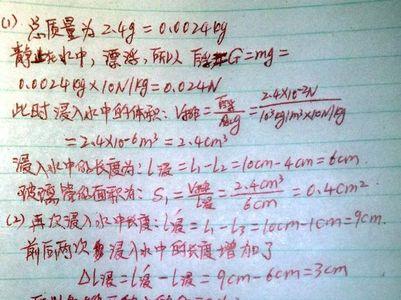 (1) 总质量为 2.4g = 0.0024kg
静止在水中,漂浮,所以 F浮=G=mg=
0.0024kg×10N/kg=0.024N
此时浸入水中的体积:V排=F浮/ρ水g=2.4×10⁻²N/10³kg/m³×10N/kg
=2.4×10⁻⁶m³=2.4cm³
浸入水中的长度为:L浸=L₁-L₂=10cm-4cm=6cm.
玻璃管的面积为:S₁=V排/L浸=2.4cm³/6cm=0.4cm².
(2) 再次浸入水中长度:L浸'=L₁-L₃=10cm-1cm=9cm.
前后两次浸入水中的长度增加了
ΔL浸=L浸'-L浸=9cm-6cm=3cm